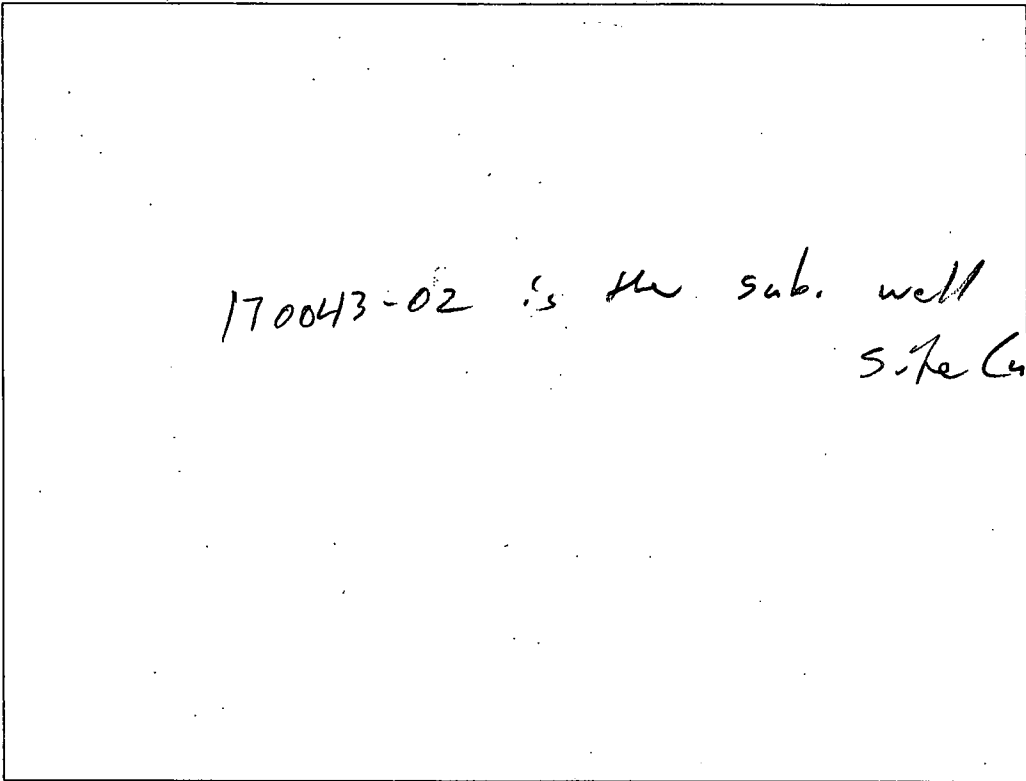 170043-02 is the sub. well
site